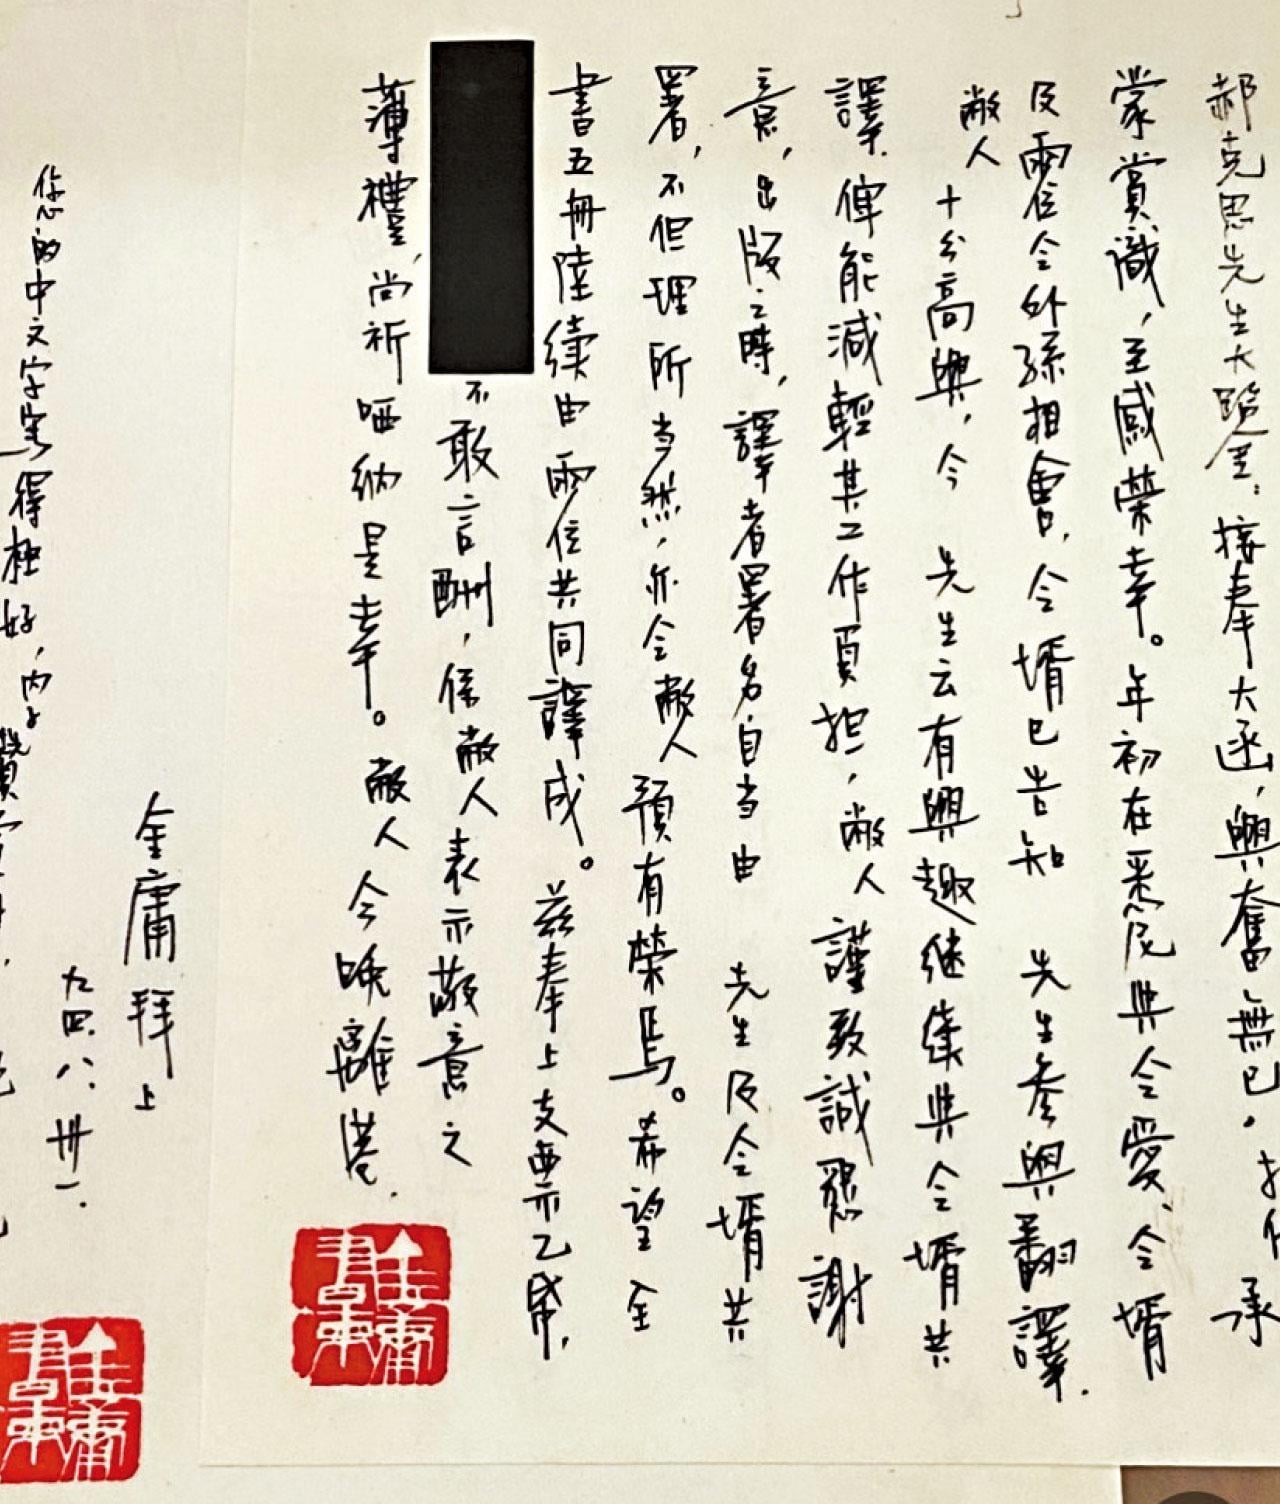 郝克思先生大鑒：接奉大函，興奮無已。拙作承
蒙賞識，至感榮幸。年初在悉尼與令愛、令壻
及兩位令外孫相會，令壻已告知 先生參與翻譯．
敝人十分高興，今 先生云有興趣继續與令壻共
譯，俾能減輕其工作負担，敝人謹致誠懇謝
意，出版之時，譯者署名自当由 先生及令壻共
署，不但理所当然，亦令敝人預有榮焉。希望全
書五冊陸續由兩位共同譯成。兹奉上支票乙帋，
不敢言酬，係敝人表示敬意之
薄禮，尚祈哂納是幸。敝人今晚離港．
金庸拜上
九四、八、卅一．
您的中文字寫得極好，内子
金庸書車
金庸書車